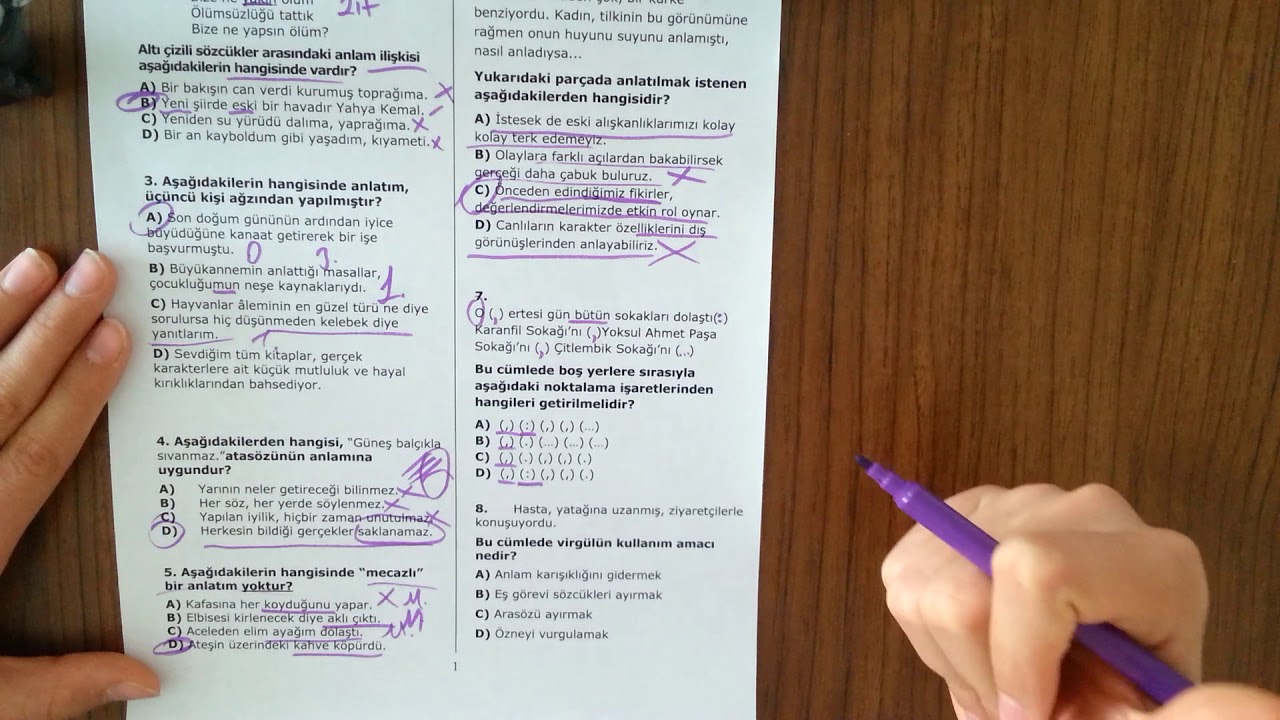 Ölümsüzlüğü tattık
Bize ne yapsın ölüm?
Altı çizili sözcükler arasındaki anlam ilişkisi
aşağıdakilerin hangisinde vardır?
A) Bir bakışın can verdi kurumuş toprağıma.
B) Yeni şiirde eski bir havadır Yahya Kemal.
C) Yeniden su yürüdü dalıma, yaprağıma.
D) Bir an kayboldum gibi yaşadım, kıyameti.
3. Aşağıdakilerin hangisinde anlatım,
üçüncü kişi ağzından yapılmıştır?
A) Son doğum gününün ardından iyice
büyüdüğüne kanaat getirerek bir işe
başvurmuştu.
O 3.
B) Büyükannemin anlattığı masallar,
çocukluğumun neşe kaynaklarıydı.
1.
C) Hayvanlar âleminin en güzel türü ne diye
sorulursa hiç düşünmeden kelebek diye
yanıtlarım.
D) Sevdiğim tüm kitaplar, gerçek
karakterlere ait küçük mutluluk ve hayal
kırıklıklarından bahsediyor.
4. Aşağıdakilerden hangisi, "Güneş balçıkla
sıvanmaz."atasözünün anlamına
uygundur?
A) Yarının neler getireceği bilinmez.
B) Her söz, her yerde söylenmez.
C) Yapılan iyilik, hiçbir zaman unutulmaz.
D) Herkesin bildiği gerçekler saklanamaz.
5. Aşağıdakilerin hangisinde "mecazlı"
bir anlatım yoktur?
A) Kafasına her koyduğunu yapar.
B) Elbisesi kirlenecek diye aklı çıktı.
C) Aceleden elim ayağım dolaştı.
D) Ateşin üzerindeki kahve köpürdü.
benziyordu. Kadın, tilkinin bu görünümüne
rağmen onun huyunu suyunu anlamıştı,
nasıl anladıysa...
Yukarıdaki parçada anlatılmak istenen
aşağıdakilerden hangisidir?
A) İstesek de eski alışkanlıklarımızı kolay
kolay terk edemeyiz.
B) Olaylara farklı açılardan bakabilirsek
gerçeği daha çabuk buluruz.
C) Önceden edindiğimiz fikirler,
değerlendirmelerimizde etkin rol oynar.
D) Canlıların karakter özelliklerini dış
görünüşlerinden anlayabiliriz.
7.
O (,) ertesi gün bütün sokakları dolaştı(:)
Karanfil Sokağı'nı (,)Yoksul Ahmet Paşa
Sokağı'nı (,) Çitlembik Sokağı'nı (...)
Bu cümlede boş yerlere sırasıyla
aşağıdaki noktalama işaretlerinden
hangileri getirilmelidir?
A) (,) (:) (,) (,) (...)
B) (,) (.) (...) (...) (...)
C) (,) (.) (,) (,) (.)
D) (,) (:) (,) (,) (.)
8. Hasta, yatağına uzanmış, ziyaretçilerle
konuşuyordu.
Bu cümlede virgülün kullanım amacı
nedir?
A) Anlam karışıklığını gidermek
B) Eş görevi sözcükleri ayırmak
C) Arasözü ayırmak
D) Özneyi vurgulamak
1